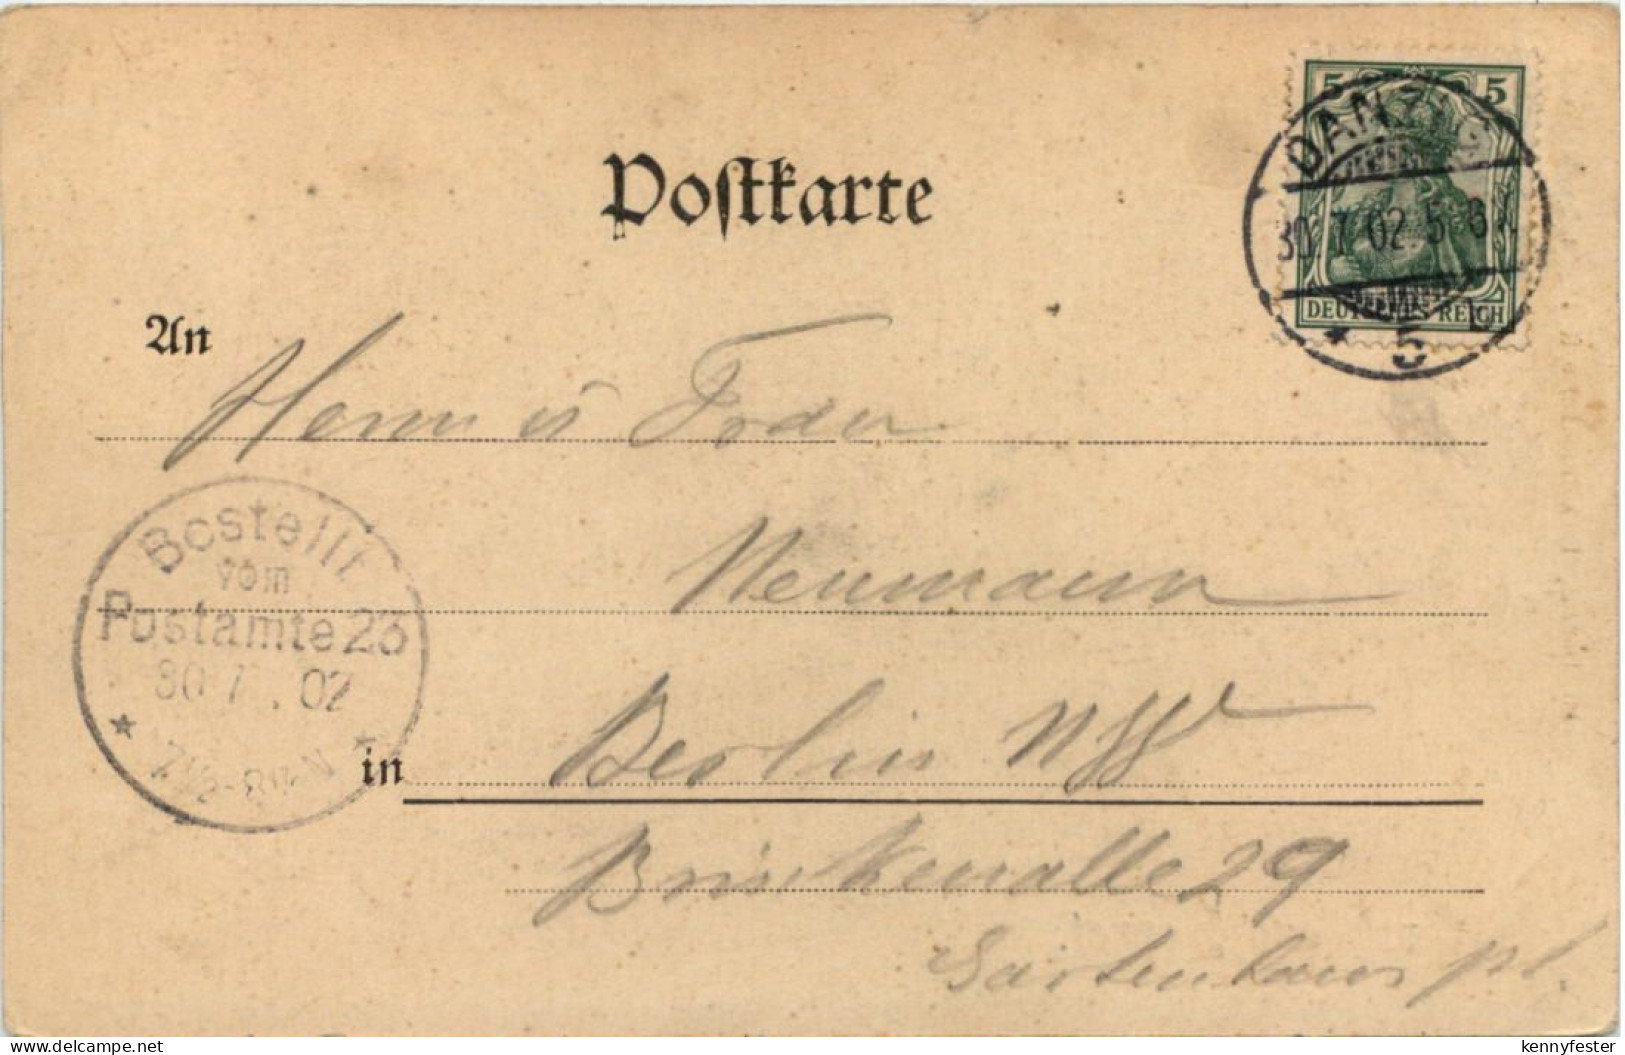 5 5
DANZIG
30.7.02.5-6N
DEUTSCHES REICH
* 5 b
Postkarte
An
Herrn ü Frau
Neumann
Bestellt
vom
Postamte 23
30.7.02
7½-8½N
in
Berlin NW
Brückenalle 29
Gartenhaus pt.
kennyfester